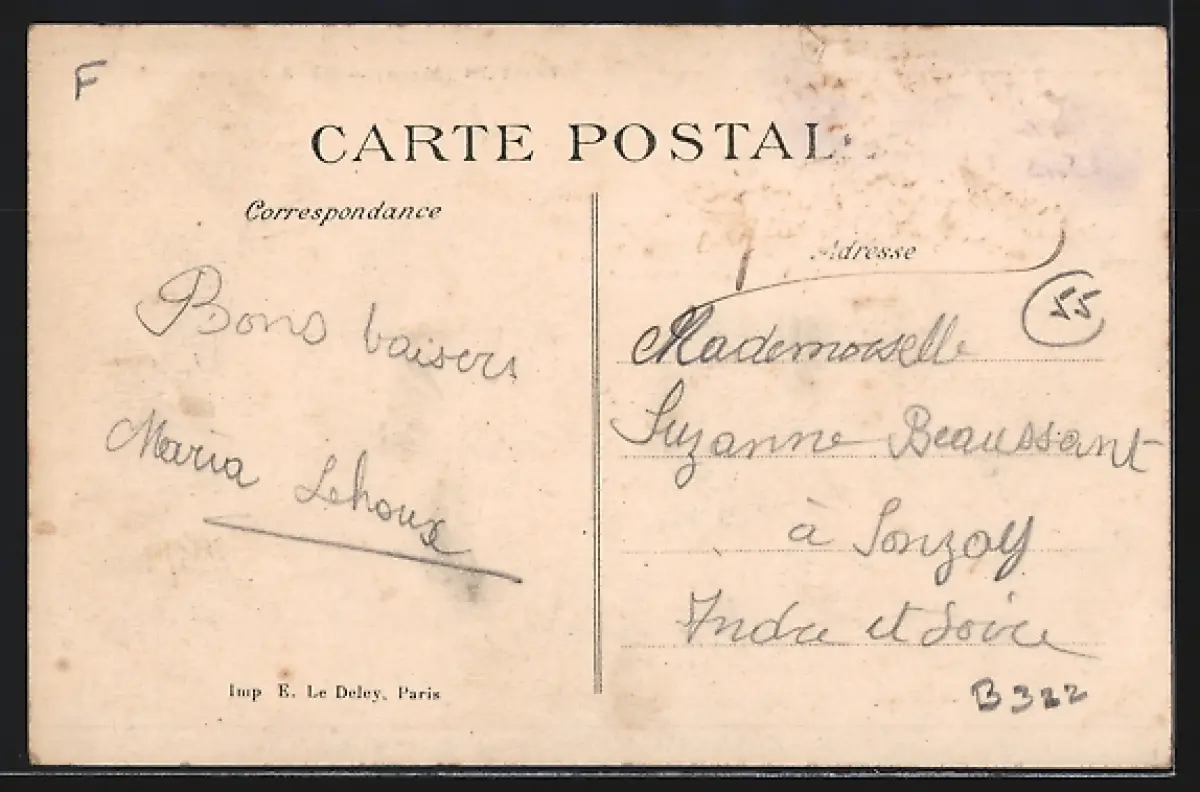 F
CARTE POSTAL
Correspondance
Adresse
Bons baisers
Maria Lehoux
55
Mademoiselle
Suzanne Beaussant
à Sonzay
Indre et Loire
Imp E. Le Deley, Paris
B322